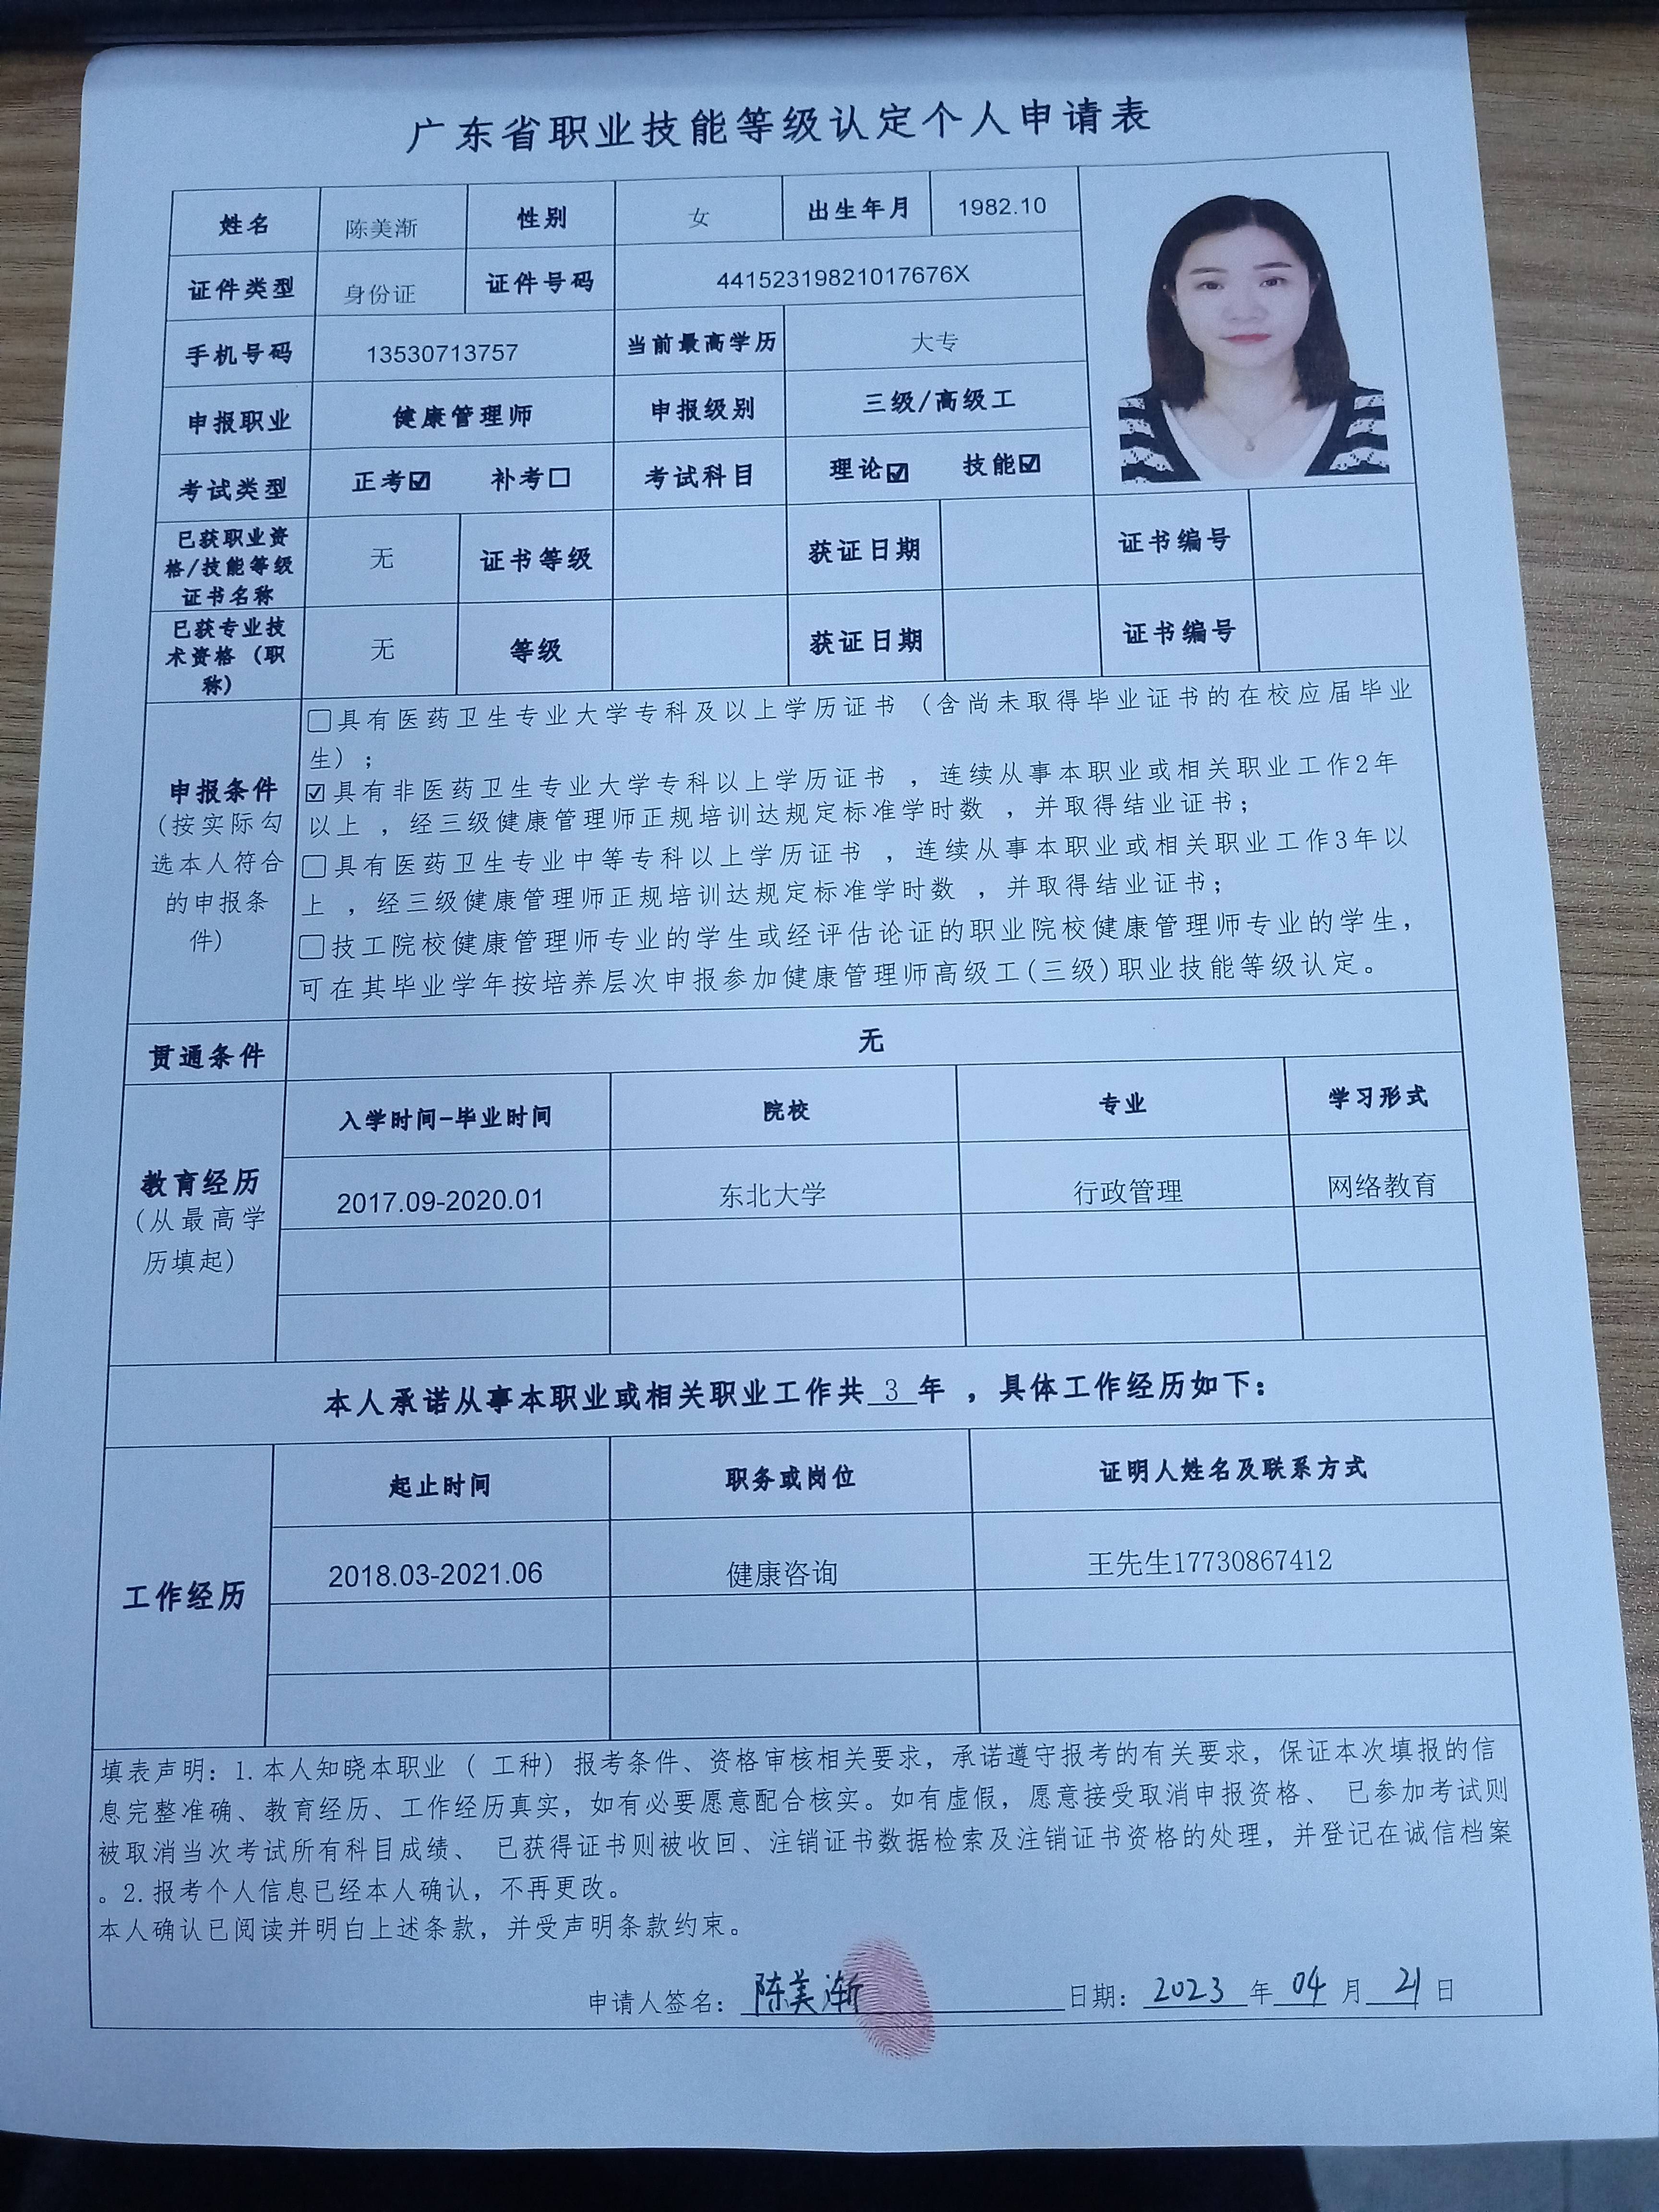 广东省职业技能等级认定个人申请表
姓名 陈美渐 性别 女 出生年月 1982.10
证件类型 身份证 证件号码 44152319821017676X
手机号码 13530713757 当前最高学历 大专
申报职业 健康管理师 申报级别 三级/高级工
考试类型 正考☑ 补考□ 考试科目 理论☑ 技能☑
已获职业资
格/技能等级
证书名称
无 证书等级 获证日期 证书编号
已获专业技
术资格（职
称）
无 等级 获证日期 证书编号
申报条件
（按实际勾
选本人符合
的申报条
件）
□具有医药卫生专业大学专科及以上学历证书（含尚未取得毕业证书的在校应届毕业
生）；
☑具有非医药卫生专业大学专科以上学历证书，连续从事本职业或相关职业工作2年
以上，经三级健康管理师正规培训达规定标准学时数，并取得结业证书；
□具有医药卫生专业中等专科以上学历证书，连续从事本职业或相关职业工作3年以
上，经三级健康管理师正规培训达规定标准学时数，并取得结业证书；
□技工院校健康管理师专业的学生或经评估论证的职业院校健康管理师专业的学生，
可在其毕业学年按培养层次申报参加健康管理师高级工(三级)职业技能等级认定。
贯通条件 无
教育经历
（从最高学
历填起）
入学时间-毕业时间 院校 专业 学习形式
2017.09-2020.01 东北大学 行政管理 网络教育
本人承诺从事本职业或相关职业工作共 3 年，具体工作经历如下：
工作经历
起止时间 职务或岗位 证明人姓名及联系方式
2018.03-2021.06 健康咨询 王先生17730867412
填表声明：1.本人知晓本职业（工种）报考条件、资格审核相关要求，承诺遵守报考的有关要求，保证本次填报的信
息完整准确、教育经历、工作经历真实，如有必要愿意配合核实。如有虚假，愿意接受取消申报资格、 已参加考试则
被取消当次考试所有科目成绩、 已获得证书则被收回、注销证书数据检索及注销证书资格的处理，并登记在诚信档案
。2.报考个人信息已经本人确认，不再更改。
本人确认已阅读并明白上述条款，并受声明条款约束。
申请人签名： 陈美渐 日期： 2023 年 04 月 21 日